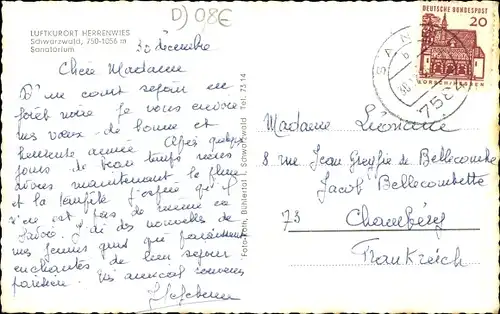 D) 08€
LUFTKURORT HERRENWIES
Schwarzwald, 750-1056 m
Sanatorium
30 décembre
Chère Madame
D'un court séjour en
forêt noire je vous envoie
mes vœux de bonne et
heureuse année. Après quelques
jours de beau temps nous
avons maintenant la pluie
et la tempête. J'espère qu'il
n'en est pas de même en
Savoie. J'ai des nouvelles de
mes jeunes gens qui paraissent
enchantés de leur séjour
parisien. amical souvenir
Foto-Roth, Bühlertal i. Schwarzwald Tel. 73 14
DEUTSCHE BUNDESPOST
20
LORSCH/HESSEN
30.
Madame Léonianne
8 rue Jean Greyfié de Bellecombe
Jacob Bellecombette
73 Chambéry
Frankreich